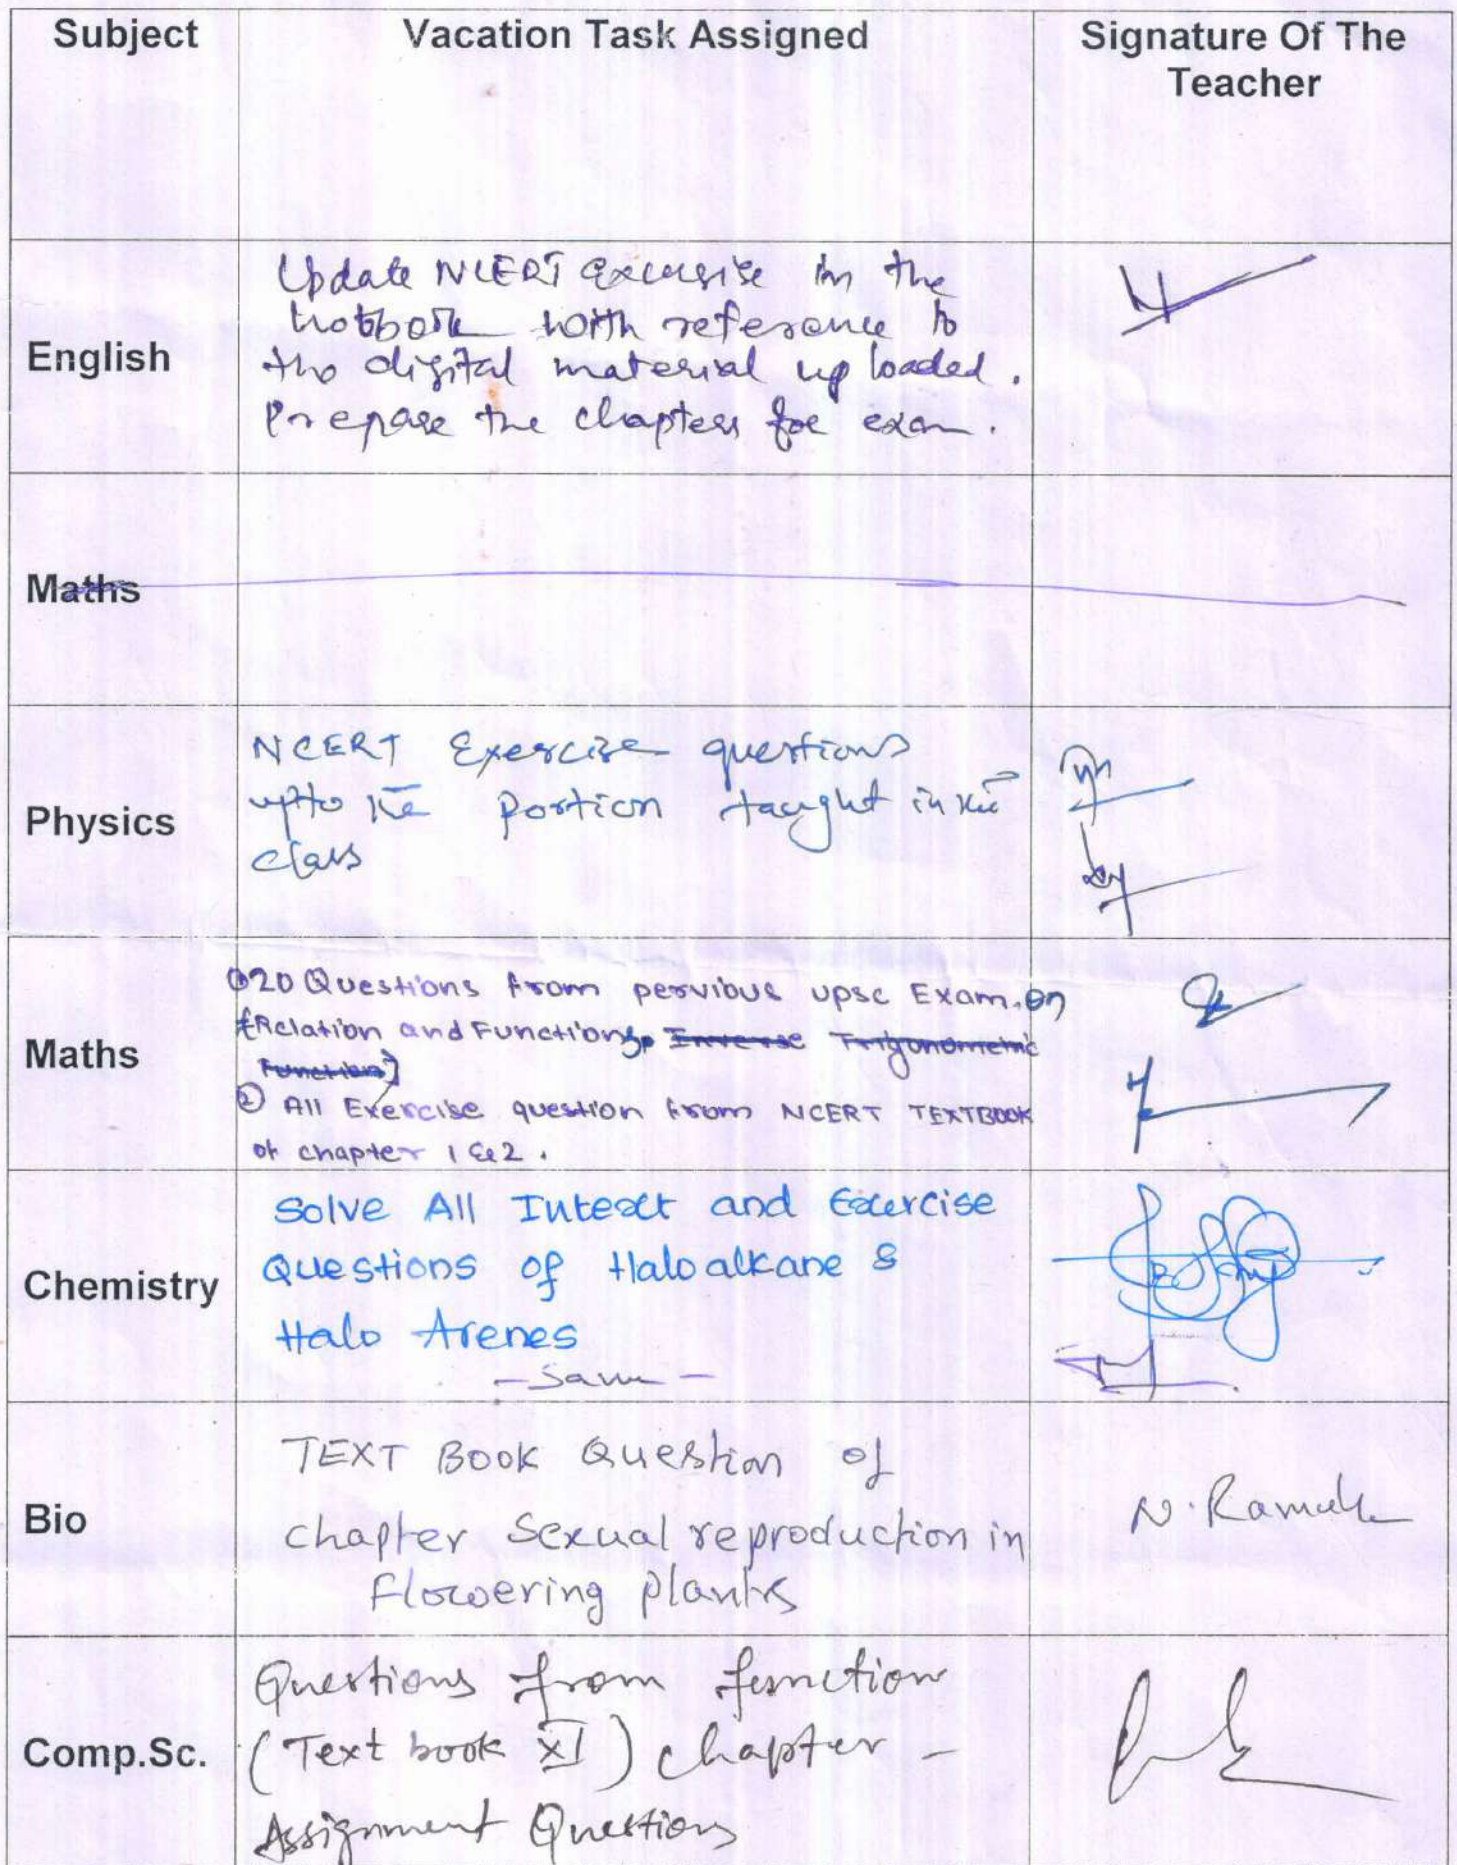 Subject Vacation Task Assigned Signature Of The
Teacher
English
Update NCERT Excersise in the
notbook with reference to
the digital material up loaded.
Prepare the chapters for exam.
Maths
Physics
NCERT Exercise questions
upto the portion taught in the
class
Maths
① 20 Questions from pervious UPSC Exam. on
Relation and Functions, Inverse Trigonometric
Function
② All Exercise question from NCERT TEXTBOOK
of chapter 1 & 2.
Chemistry
Solve All Intext and Exercise
Questions of Haloalkane &
Halo Arenes
- Same -
Bio
TEXT BOOK Question of
chapter Sexual reproduction in
Flowering plants
N. Ramesh
Comp.Sc.
Questions from function
(Text book XI) chapter -
Assignment Questions